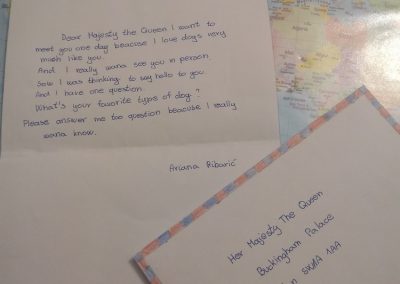 Dear Majesty the Queen I want to
meet you one day beacuse I love dogs very
much like you.
And I really wana see you in person
Sow I was thinking to say hello to you
And I have one question.
What's your favorite type of dog?
Please answer me too question beacuse I really
wana know.
Ariana Ribarić
Her Majesty The Queen
Buckingham Palace
SW1A 1AA